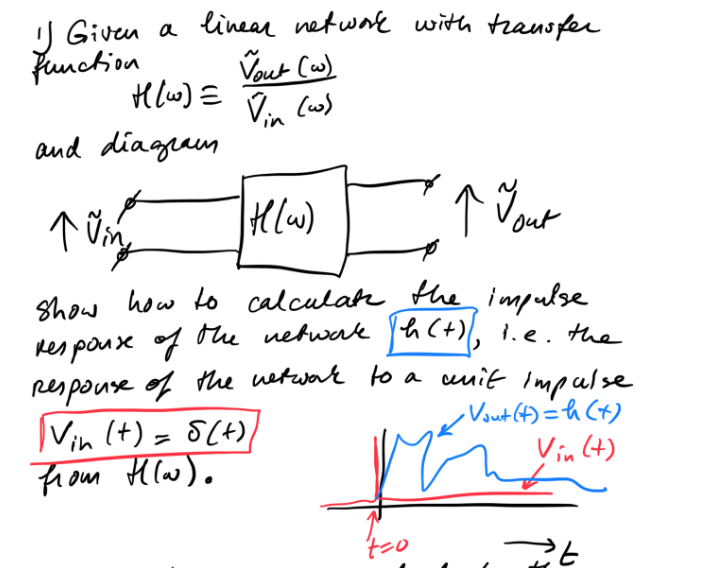 1) Given a linear network with transfer
function
H(ω) ≡ Ṽout (ω) / Ṽin (ω)
and diagram
↑ Ṽin
H(ω)
↑ Ṽout
show how to calculate the impulse
response of the network h(t), i.e. the
response of the network to a unit impulse
Vin (t) = δ(t)
from H(ω).
Vout(t) = h(t)
Vin (t)
t=0
→ t